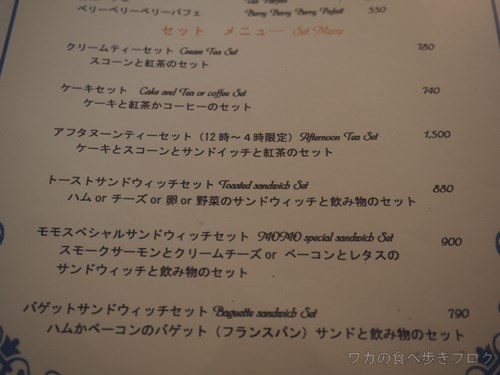 ベリーベリーベリーパフェ Berry Berry Berry Parfait 550
セット メニュー Set Menu
クリームティーセット Cream Tea Set 780
スコーンと紅茶のセット
ケーキセット Cake and Tea or coffee Set 740
ケーキと紅茶かコーヒーのセット
アフタヌーンティーセット（12時～4時限定）Afternoon Tea Set 1,500
ケーキとスコーンとサンドイッチと紅茶のセット
トーストサンドウィッチセット Toasted sandwich Set 880
ハム or チーズ or 卵 or 野菜のサンドウィッチと飲み物のセット
モモスペシャルサンドウィッチセット MOMO special sandwich Set 900
スモークサーモンとクリームチーズ or ベーコンとレタスの
サンドウィッチと飲み物のセット
バゲットサンドウィッチセット Baguette sandwich Set 790
ハムかベーコンのバゲット（フランスパン）サンドと飲み物のセット
ワカの食べ歩きブログ